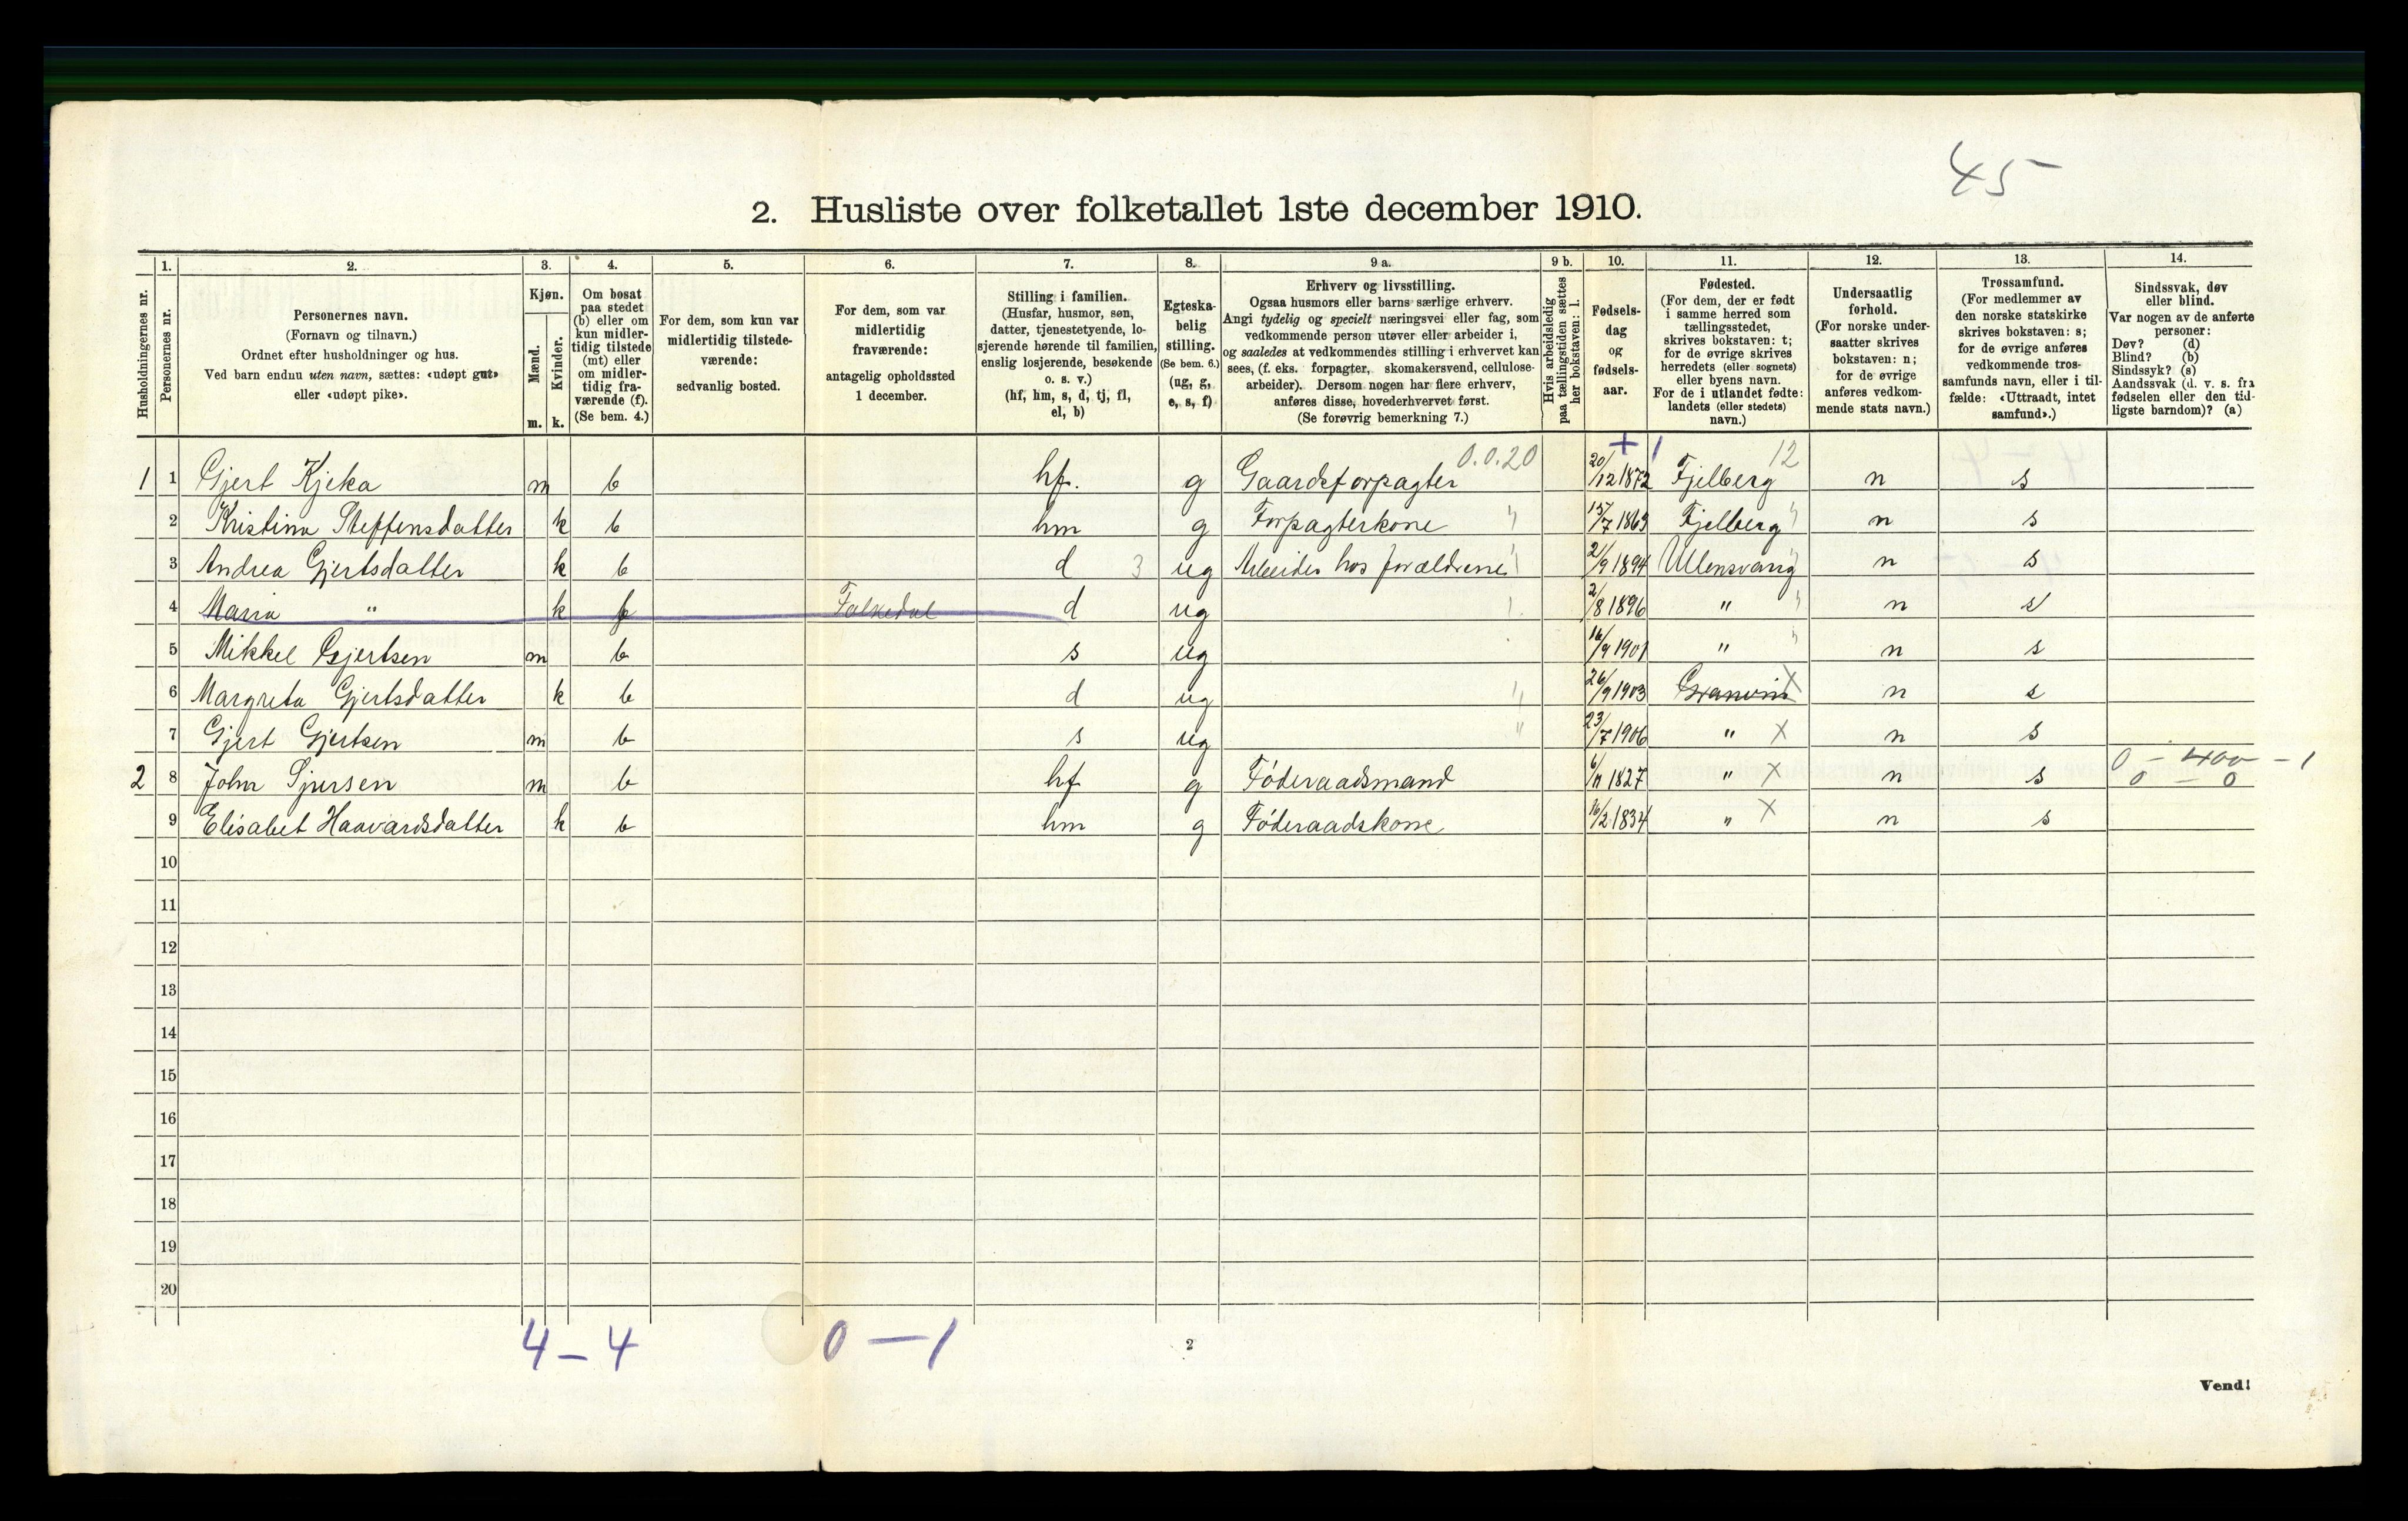 45
2. Husliste over folketallet 1ste december 1910.
Husholdningernes nr.
1. Personernes nr.
2. Personernes navn. (Fornavn og tilnavn.) Ordnet efter husholdninger og hus. Ved barn endnu uten navn, sættes: «udøpt gut» eller «udøpt pike».
3. Kjøn. Mænd. m. Kvinder. k.
4. Om bosat paa stedet (b) eller om kun midlertidig tilstede (mt) eller om midlertidig fraværende (f). (Se bem. 4.)
5. For dem, som kun var midlertidig tilstedeværende: sedvanlig bosted.
6. For dem, som var midlertidig fraværende: antagelig opholdssted 1 december.
7. Stilling i familien. (Husfar, husmor, søn, datter, tjenestetyende, losjerende hørende til familien, enslig losjerende, besøkende o. s. v.) (hf, hm, s, d, tj, fl, el, b)
8. Egteskabelig stilling. (Se bem. 6.) (ug, g, e, s, f)
9 a. Erhverv og livsstilling. Ogsaa husmors eller barns særlige erhverv. Angi tydelig og specielt næringsvei eller fag, som vedkommende person utøver eller arbeider i, og saaledes at vedkommendes stilling i erhvervet kan sees, (f. eks. forpagter, skomakersvend, cellulosearbeider). Dersom nogen har flere erhverv, anføres disse, hovederhvervet først. (Se forøvrig bemerkning 7.)
9 b. Hvis arbeidsledig paa tællingstiden sættes her bokstaven: l.
10. Fødselsdag og fødselsaar.
11. Fødested. (For dem, der er født i samme herred som tællingsstedet, skrives bokstaven: t; for de øvrige skrives herredets (eller sognets) eller byens navn. For de i utlandet fødte: landets (eller stedets) navn.)
12. Undersaatlig forhold. (For norske undersaatter skrives bokstaven: n; for de øvrige anføres vedkommende stats navn.)
13. Trossamfund. (For medlemmer av den norske statskirke skrives bokstaven: s; for de øvrige anføres vedkommende trossamfunds navn, eller i tilfælde: «Uttraadt, intet samfund».)
14. Sindssvak, døv eller blind. Var nogen av de anførte personer: Døv? (d) Blind? (b) Sindssyk? (s) Aandssvak (d. v. s. fra fødselen eller den tidligste barndom)? (a)
+ 1
1 1 Gjert Kjeka m b hf. g Gaardsforpagter 0.0.20 20/12 1872 Fjelberg 12 n s
2 Kristina Steffensdatter k b hm g Forpagterkone " 15/7 1863 Fjelberg " n s
3 Andrea Gjertsdatter k b d 3 ug Arbeider hos forældrene 2/9 1894 Ullensvang n s
4 Maria " k f Folkedal d ug 2/8 1896 " n s
5 Mikkel Gjertsen m b s ug 16/9 1901 " n s
6 Margreta Gjertsdatter k b d ug " 26/9 1903 Granvin X n s
7 Gjert Gjertsen m b s ug " 23/7 1906 " X n s
2 8 John Sjursen m b hf g Føderaadsmand 6/11 1827 " X n s 0 - 400 - 1
0 - 0
9 Elisabet Haavardsdatter k b hm g Føderaadskone 16/2 1834 " X n s
10
11
12
13
14
15
16
17
18
19
20
4 - 4 0 - 1
2
Vend!